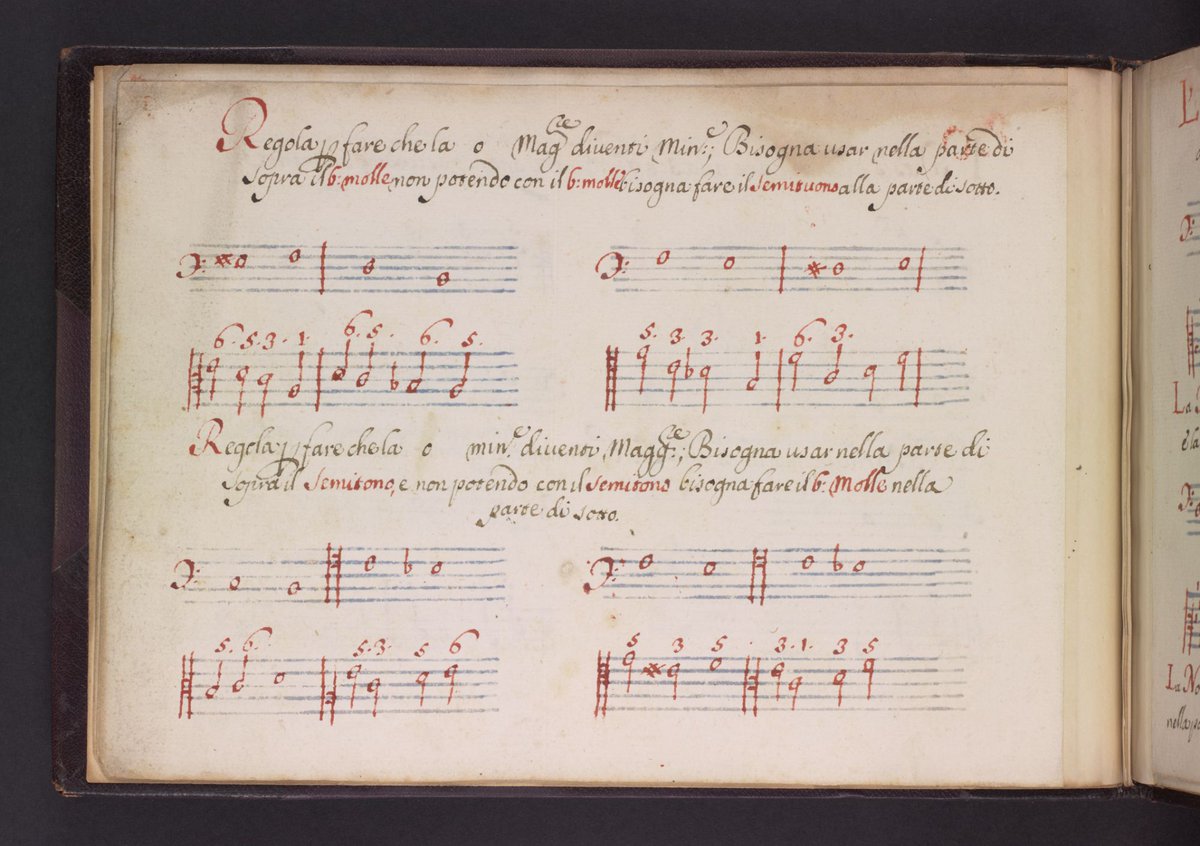 Regola p fare che la o Magce diventi Min:e; Bisogna usar nella parte di
sopra il b: molle non potendo con il b: molle bisogna fare il semituono alla parte di sotto.
6. 5. 3. 1. 6. 5. 6. 5.
5. 3. 3. 1. 6. 3.
Regola p fare che la o min:e diventi Maggce:; Bisogna usar nella parte di
sopra il Semitono, e non potendo con il semitono bisogna fare il b: Molle nella
parte di sotto.
5. 6. 5. 3. 5 6
5 3 5. 3. 1. 3 5
La